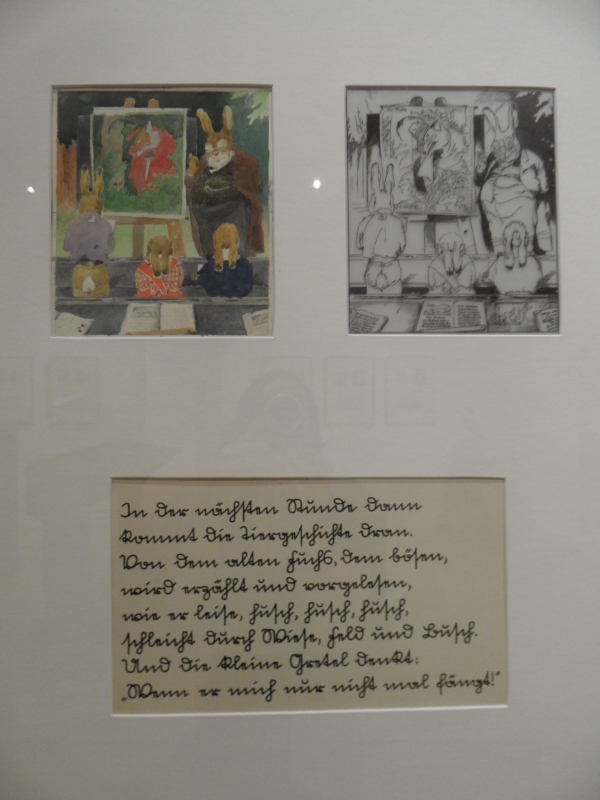 In der nächsten Stunde dann
kommt die Tiergeschichte dran.
Von dem alten Fuchs, dem bösen,
wird erzählt und vorgelesen,
wie er leise, husch, husch, husch,
schleicht durch Wiese, Feld und Busch.
Und die kleine Gretel denkt:
„Wenn er mich nur nicht mal fängt!"